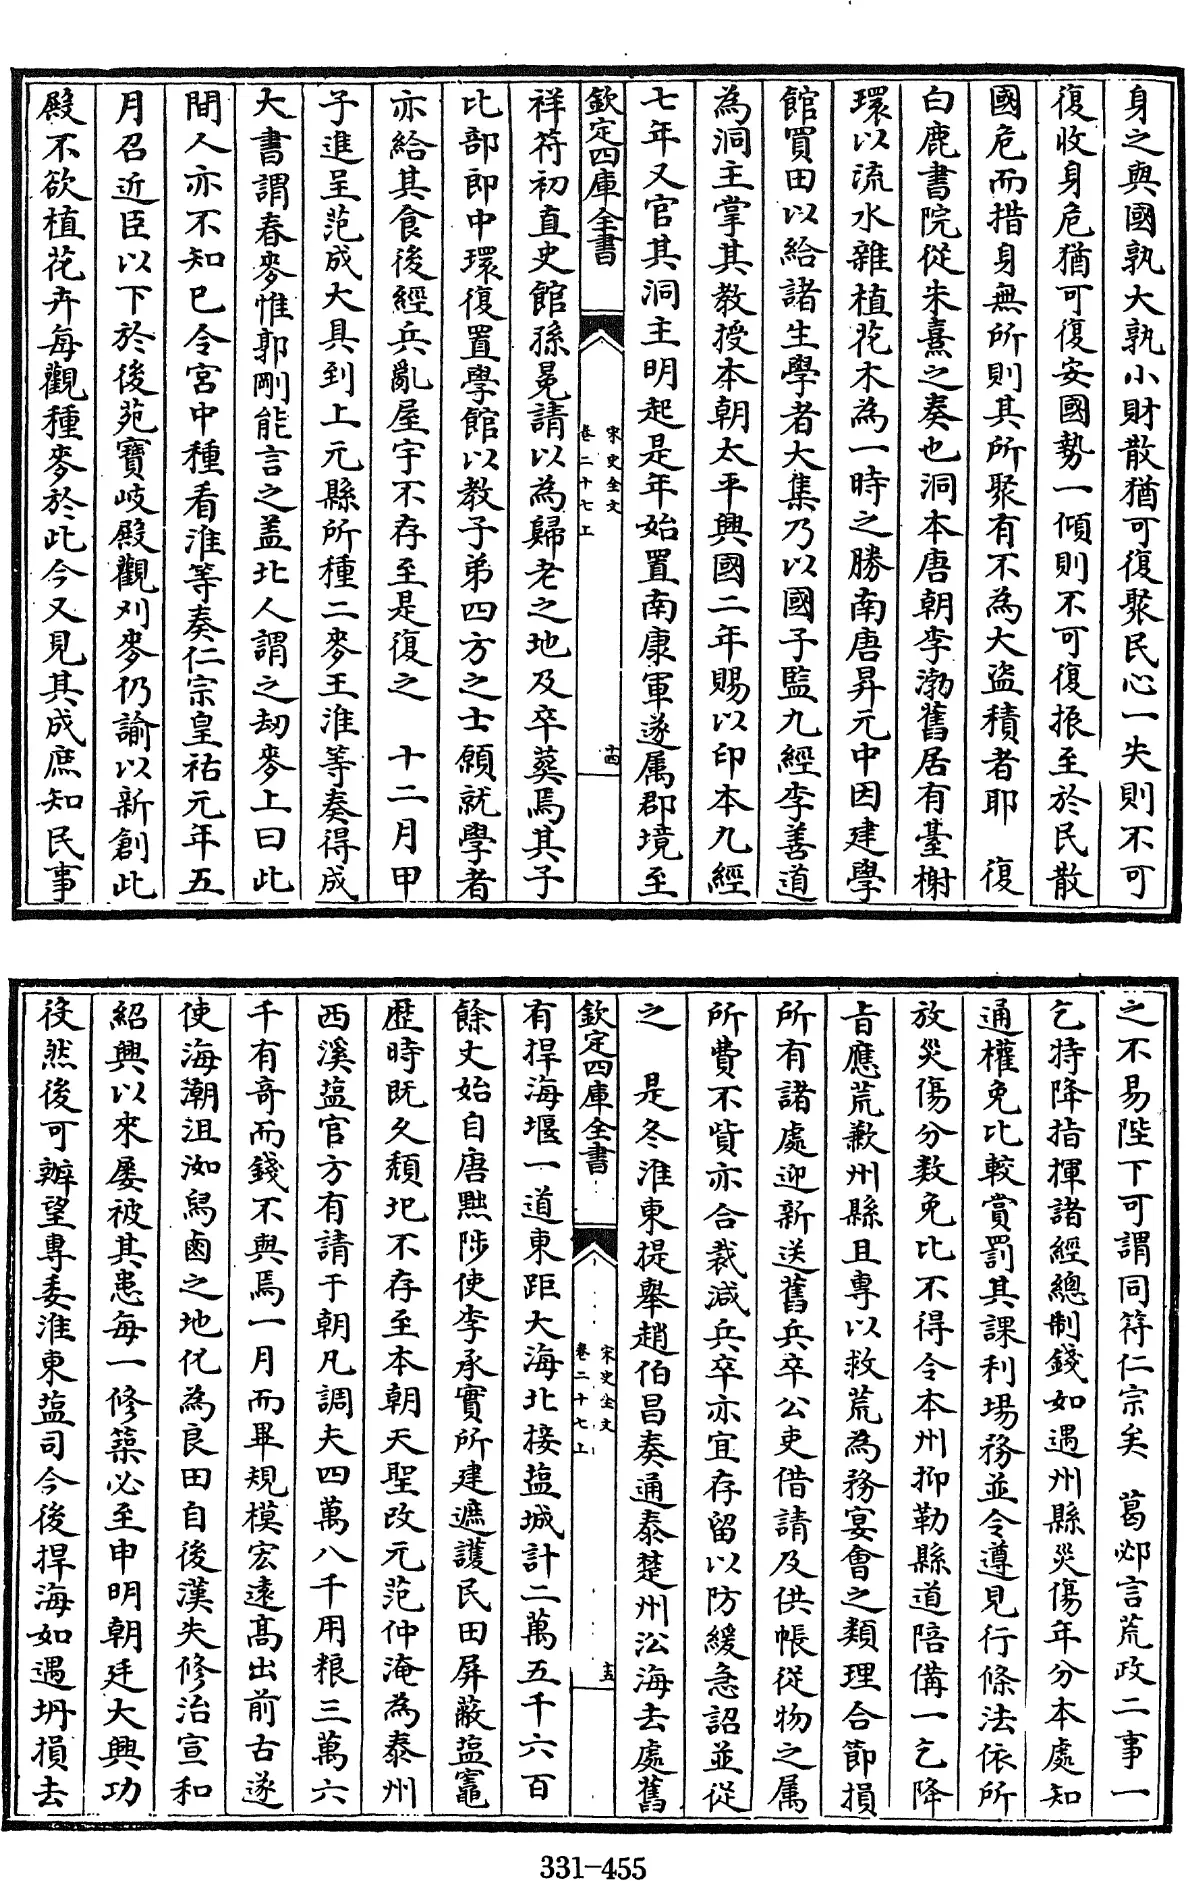 身之與國孰大孰小財散猶可復聚民心一失則不可
復收身危猶可復安國勢一傾則不可復振至於民散
國危而措身無所則其所聚有不為大盜積者耶　復
白鹿書院從朱熹之奏也洞本唐朝李渤舊居有臺榭
環以流水雜植花木為一時之勝南唐昇元中因建學
館買田以給諸生學者大集乃以國子監九經李善道
為洞主掌其教授本朝太平興國二年賜以印本九經
七年又官其洞主明起是年始置南康軍遂属郡境至
欽定四庫全書
宋史全文
卷二十七上
十四
祥符初直史館孫冕請以為歸老之地及卒葬焉其子
比部郎中環復置學館以教子弟四方之士願就學者
亦給其食後經兵亂屋宇不存至是復之　十二月甲
子進呈范成大具到上元縣所種二麥王淮等奏得成
大書謂春麥惟郭剛能言之蓋北人謂之刼麥上曰此
間人亦不知已令宮中種看淮等奏仁宗皇祐元年五
月召近臣以下於後苑寶岐殿觀刈麥仍諭以新創此
殿不欲植花卉每觀種麥於此今又見其成庶知民事
之不易陛下可謂同符仁宗矣　葛邲言荒政二事一
乞特降指揮諸經總制錢如遇州縣災傷年分本處知
通權免比較賞罰其課利場務並令遵見行條法依所
放災傷分數免比不得令本州抑勒縣道陪備一乞降
旨應荒歉州縣且專以救荒為務宴會之類理合節損
所有諸處迎新送舊兵卒公吏借請及供帳從物之属
所費不貲亦合裁減兵卒亦宜存留以防緩急詔並從
之　是冬淮東提舉趙伯昌奏通泰楚州沿海去處舊
欽定四庫全書
宋史全文
卷二十七上
十五
有捍海堰一道東距大海北接塩城計二萬五千六百
餘丈始自唐黜陟使李承實所建遮護民田屏蔽塩竈
歷時既久頹圯不存至本朝天聖改元范仲淹為泰州
西溪塩官方有請于朝凡調夫四萬八千用粮三萬六
千有奇而錢不與焉一月而畢規模宏遠高出前古遂
使海潮沮洳舄鹵之地化為良田自後漢失修治宣和
紹興以來屢被其患每一修築必至申明朝廷大興功
役然後可辦望專委淮東塩司今後捍海如遇坍損去
331-455